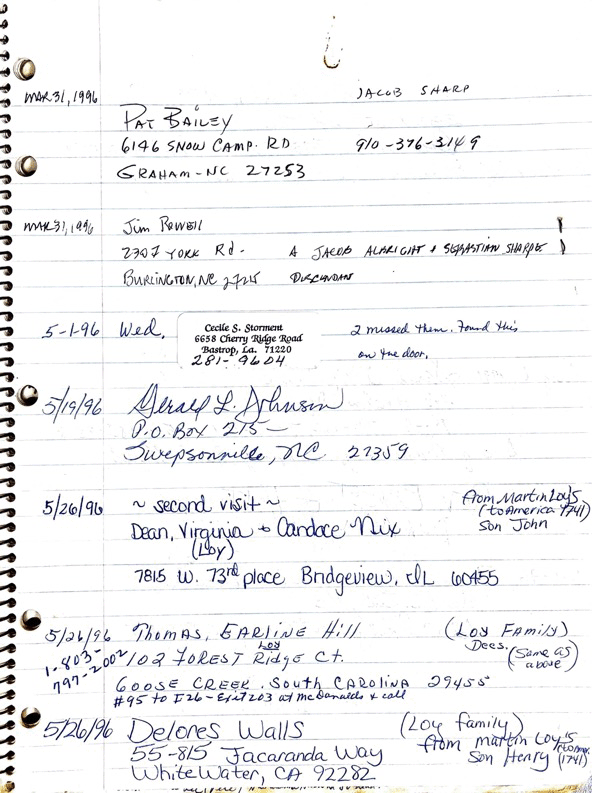 MAR 31, 1996 JACOB SHARP
PAT BAILEY
6146 SNOW CAMP. RD 910-376-3149
GRAHAM - NC 27253
MAR 31, 1996 Jim Powell
2307 YORK Rd - A JACOB ALBRIGHT + SEBASTIAN SHARPE
BURLINGTON, NC 27215 DESCENDAN
5-1-96 Wed.
Cecile S. Storment
6658 Cherry Ridge Road
Bastrop, La. 71220
281-9604
I missed them. Found this
on the door.
5/19/96 Gerald L. Johnson
P.O. Box 275
Swepsonville, NC 27359
5/26/96 ~ second visit ~
Dean, Virginia + Candace Nix
(Loy)
7815 W. 73rd place Bridgeview, IL 60455
from Martin Loy's
(to America 1741)
son John
5/26/96 Thomas, EARLINE Hill (Loy Family)
Loy Decs.
1-803-797-2002 102 FOREST Ridge Ct. (Same as above)
GOOSE CREEK, SOUTH CAROLINA 29455
#95 to I26 - Exit 203 at McDonalds & call
5/26/96 Delores Walls (Loy family)
55-815 Jacaranda Way from Martin Loy's
White Water, CA 92282 son Henry (1741)